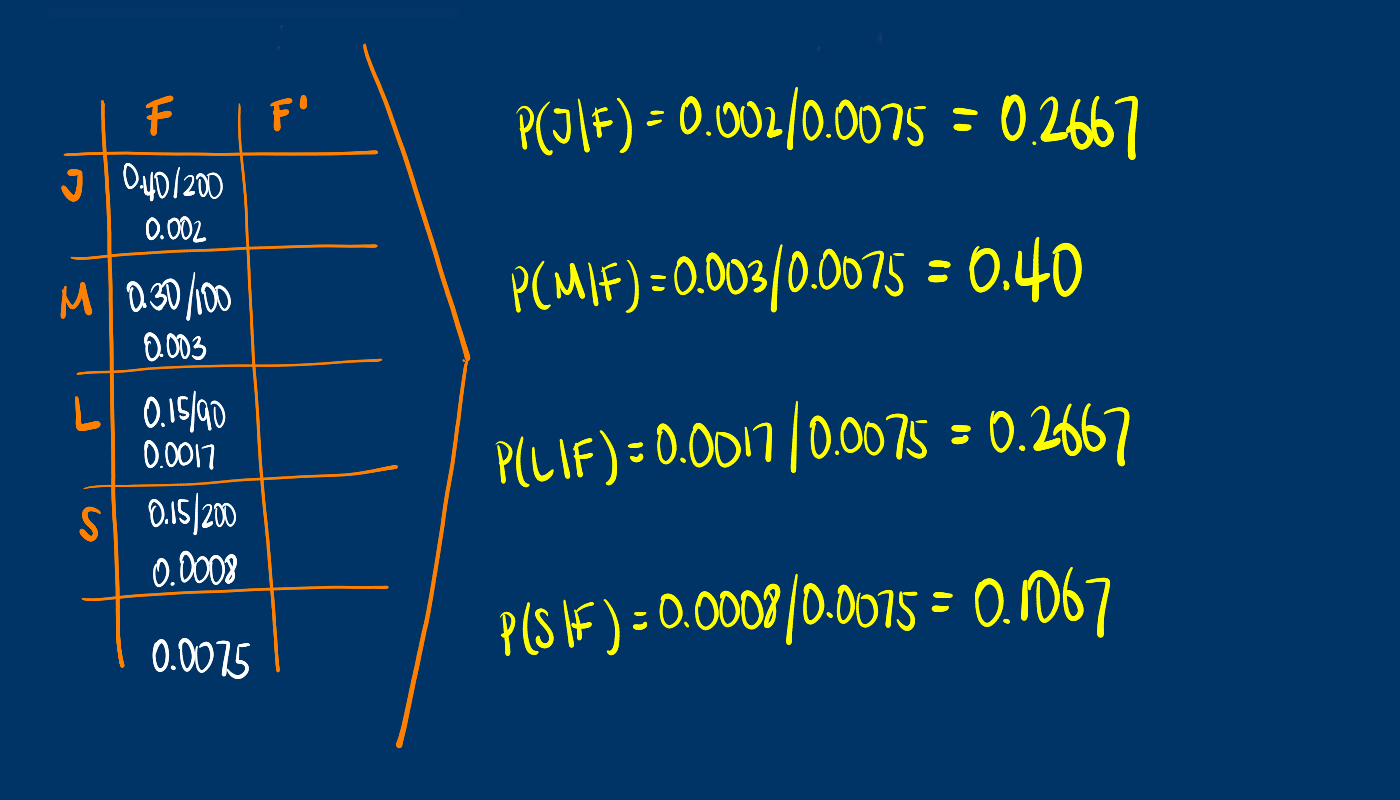 F F'
J 0.40/200
0.002
M 0.30/100
0.003
L 0.15/90
0.0017
S 0.15/200
0.0008
0.0075
P(J|F) = 0.002/0.0075 = 0.2667
P(M|F) = 0.003/0.0075 = 0.40
P(L|F) = 0.0017/0.0075 = 0.2667
P(S|F) = 0.0008/0.0075 = 0.1067